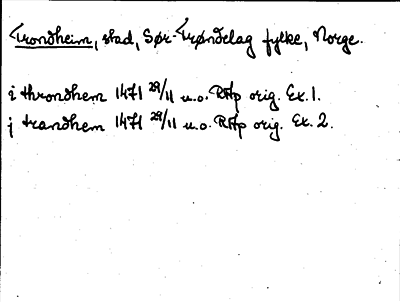 Trondheim, stad, Sør-Trøndelag fylke, Norge.
i throndhem 1471 29/11 u.o. RAp orig. Ex. 1.
j trandhem 1471 29/11 u.o. RAp orig. Ex. 2.